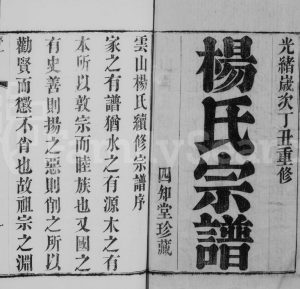 光緒歲次丁丑重修
楊氏宗譜
四知堂珍藏
雲山楊氏續修宗譜序
家之有譜猶水之有源木之有
本所以敦宗而睦族也又國之
有史善則揚之惡則削之所以
勸賢而懲不肖也故祖宗之淵